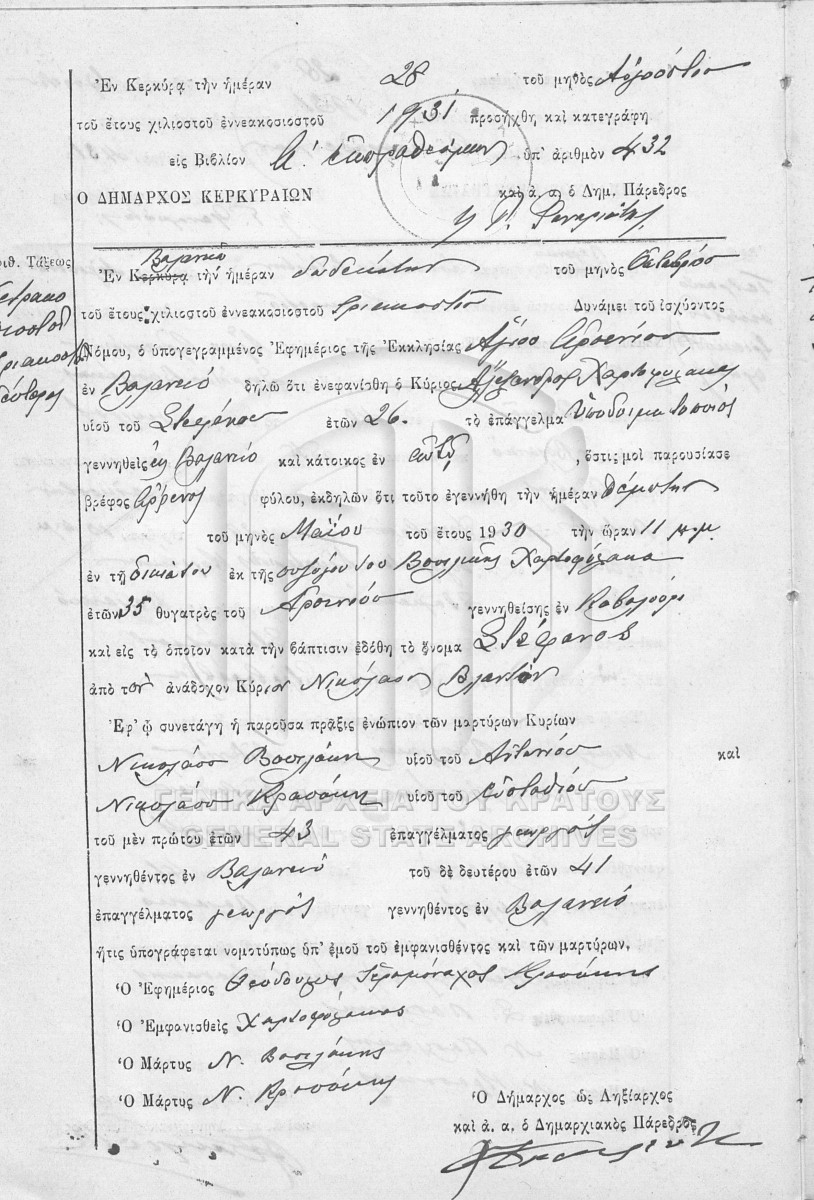 Ἐν Κερκύρᾳ τὴν ἡμέραν 28 τοῦ μηνὸς Αὐγούστου
τοῦ ἔτους χιλιοστοῦ ἐννεακοσιοστοῦ 1931 προσήχθη καὶ κατεγράφη
εἰς Βιβλίον Α! ὑπ' ἀριθμὸν 432
Ὁ ΔΗΜΑΡΧΟΣ ΚΕΡΚΥΡΑΙΩΝ καὶ ἀ. α. ὁ Δημ. Πάρεδρος
Βαλανειό
Ἐν Κερκύρᾳ τὴν ἡμέραν δωδεκάτην τοῦ μηνὸς Ὀκτωβρίου
τοῦ ἔτους χιλιοστοῦ ἐννεακοσιοστοῦ τριακοστοῦ Δυνάμει τοῦ ἰσχύοντος
Νόμου, ὁ ὑπογεγραμμένος Ἐφημέριος τῆς Ἐκκλησίας Ἁγίου Ἀρσενίου
ἐν Βαλανειό δηλῶ ὅτι ἐνεφανίσθη ὁ Κύριος Ἀλέξανδρος Χαρτοφύλακας
υἱοῦ τοῦ Στεφάνου ἐτῶν 26. τὸ ἐπάγγελμα ὑποδηματοποιός
γεννηθεὶς ἐν Βαλανειό καὶ κάτοικος ἐν αὐτῷ, ὅστις μοὶ παρουσίασε
βρέφος ἄρρενος φύλου, ἐκδηλῶν ὅτι τοῦτο ἐγεννήθη τὴν ἡμέραν πέμπτην
τοῦ μηνὸς Μαΐου τοῦ ἔτους 1930 τὴν ὥραν 11 π.μ.
ἐν τῇ οἰκίᾳ του ἐκ τῆς συζύγου του Βασιλικῆς Χαρτοφύλακα
ἐτῶν 35 θυγατρὸς τοῦ Ἀρσενίου γεννηθείσης ἐν
καὶ εἰς τὸ ὁποῖον κατὰ τὴν βάπτισιν ἐδόθη τὸ ὄνομα Στέφανος
ἀπὸ τὸν ἀνάδοχον Κύριον Νικόλαον
Ἐφ' ᾧ συνετάγη ἡ παροῦσα πρᾶξις ἐνώπιον τῶν μαρτύρων Κυρίων
Νικολάου Βασιλάκη υἱοῦ τοῦ Ἀντωνίου καὶ
Νικολάου Κρασάκη υἱοῦ τοῦ Εὐσταθίου
ΓΕΝΙΚΑ ΑΡΧΕΙΑ ΤΟΥ ΚΡΑΤΟΥΣ
GENERAL STATE ARCHIVES
τοῦ μὲν πρώτου ἐτῶν 43 ἐπαγγέλματος γεωργός
γεννηθέντος ἐν Βαλανειό τοῦ δὲ δευτέρου ἐτῶν 41
ἐπαγγέλματος γεωργός γεννηθέντος ἐν Βαλανειό
ἥτις ὑπογράφεται νομοτύπως ὑπ' ἐμοῦ τοῦ ἐμφανισθέντος καὶ τῶν μαρτύρων.
Ὁ Ἐφημέριος Θεόδουλος Ἱερομόναχος Κρασάκης
Ὁ Ἐμφανισθεὶς Χαρτοφύλακας
Ὁ Μάρτυς Ν. Βασιλάκης
Ὁ Μάρτυς Ν. Κρασάκης
Ὁ Δήμαρχος ὡς Ληξίαρχος
καὶ ἀ. α. ὁ Δημαρχιακὸς Πάρεδρος
ριθ. Τάξεως